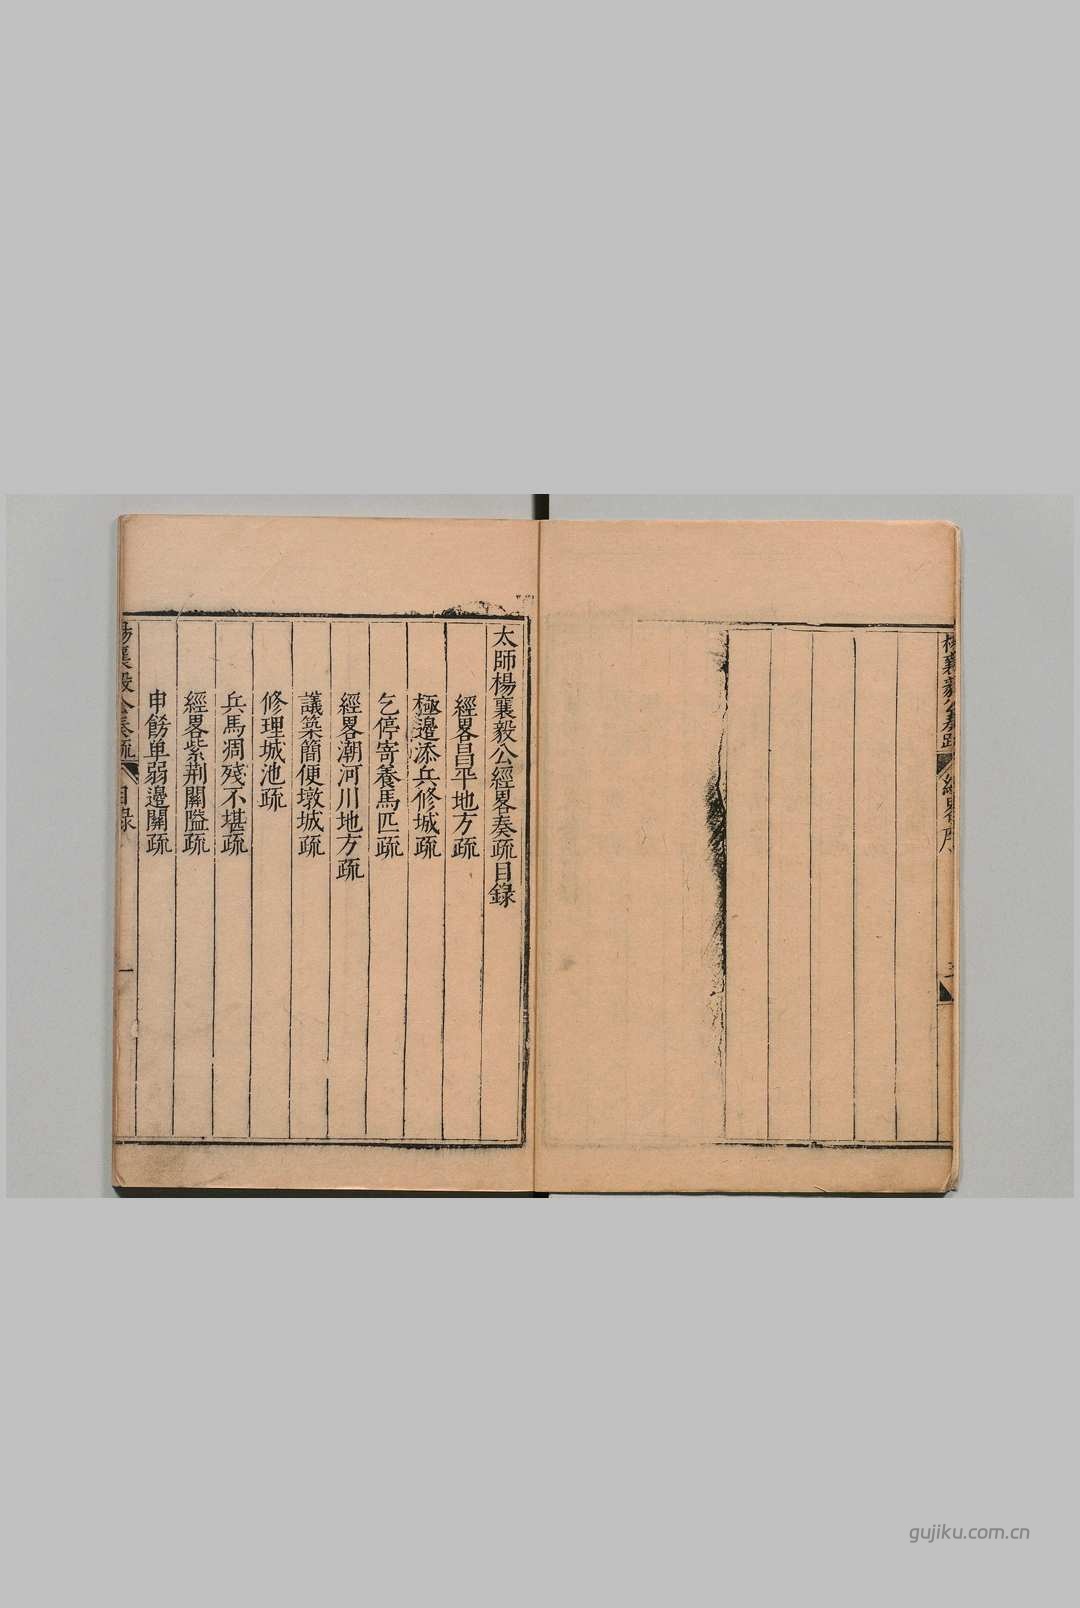 楊襄毅公奏疏 經畧序 三
太師楊襄毅公經畧奏疏目錄
經畧昌平地方疏
極邊添兵修城疏
乞停寄養馬匹疏
經畧潮河川地方疏
議築簡便墩城疏
修理城池疏
兵馬凋殘不堪疏
經畧紫荆關隘疏
申飭单弱邊關疏
楊襄毅公奏疏 目錄 一
gujiku.com.cn